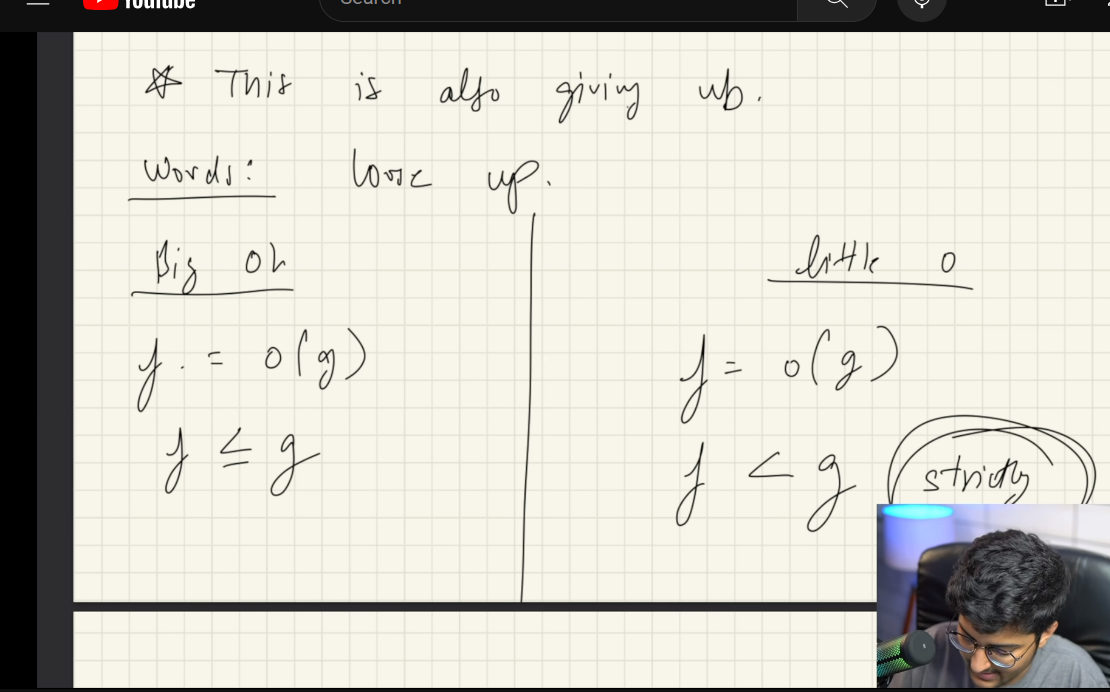 YouTube
Search
* This is also giving up.
Words: loose up.
Big Oh
f = O(g)
f ≤ g
little o
f = o(g)
f < g strictly